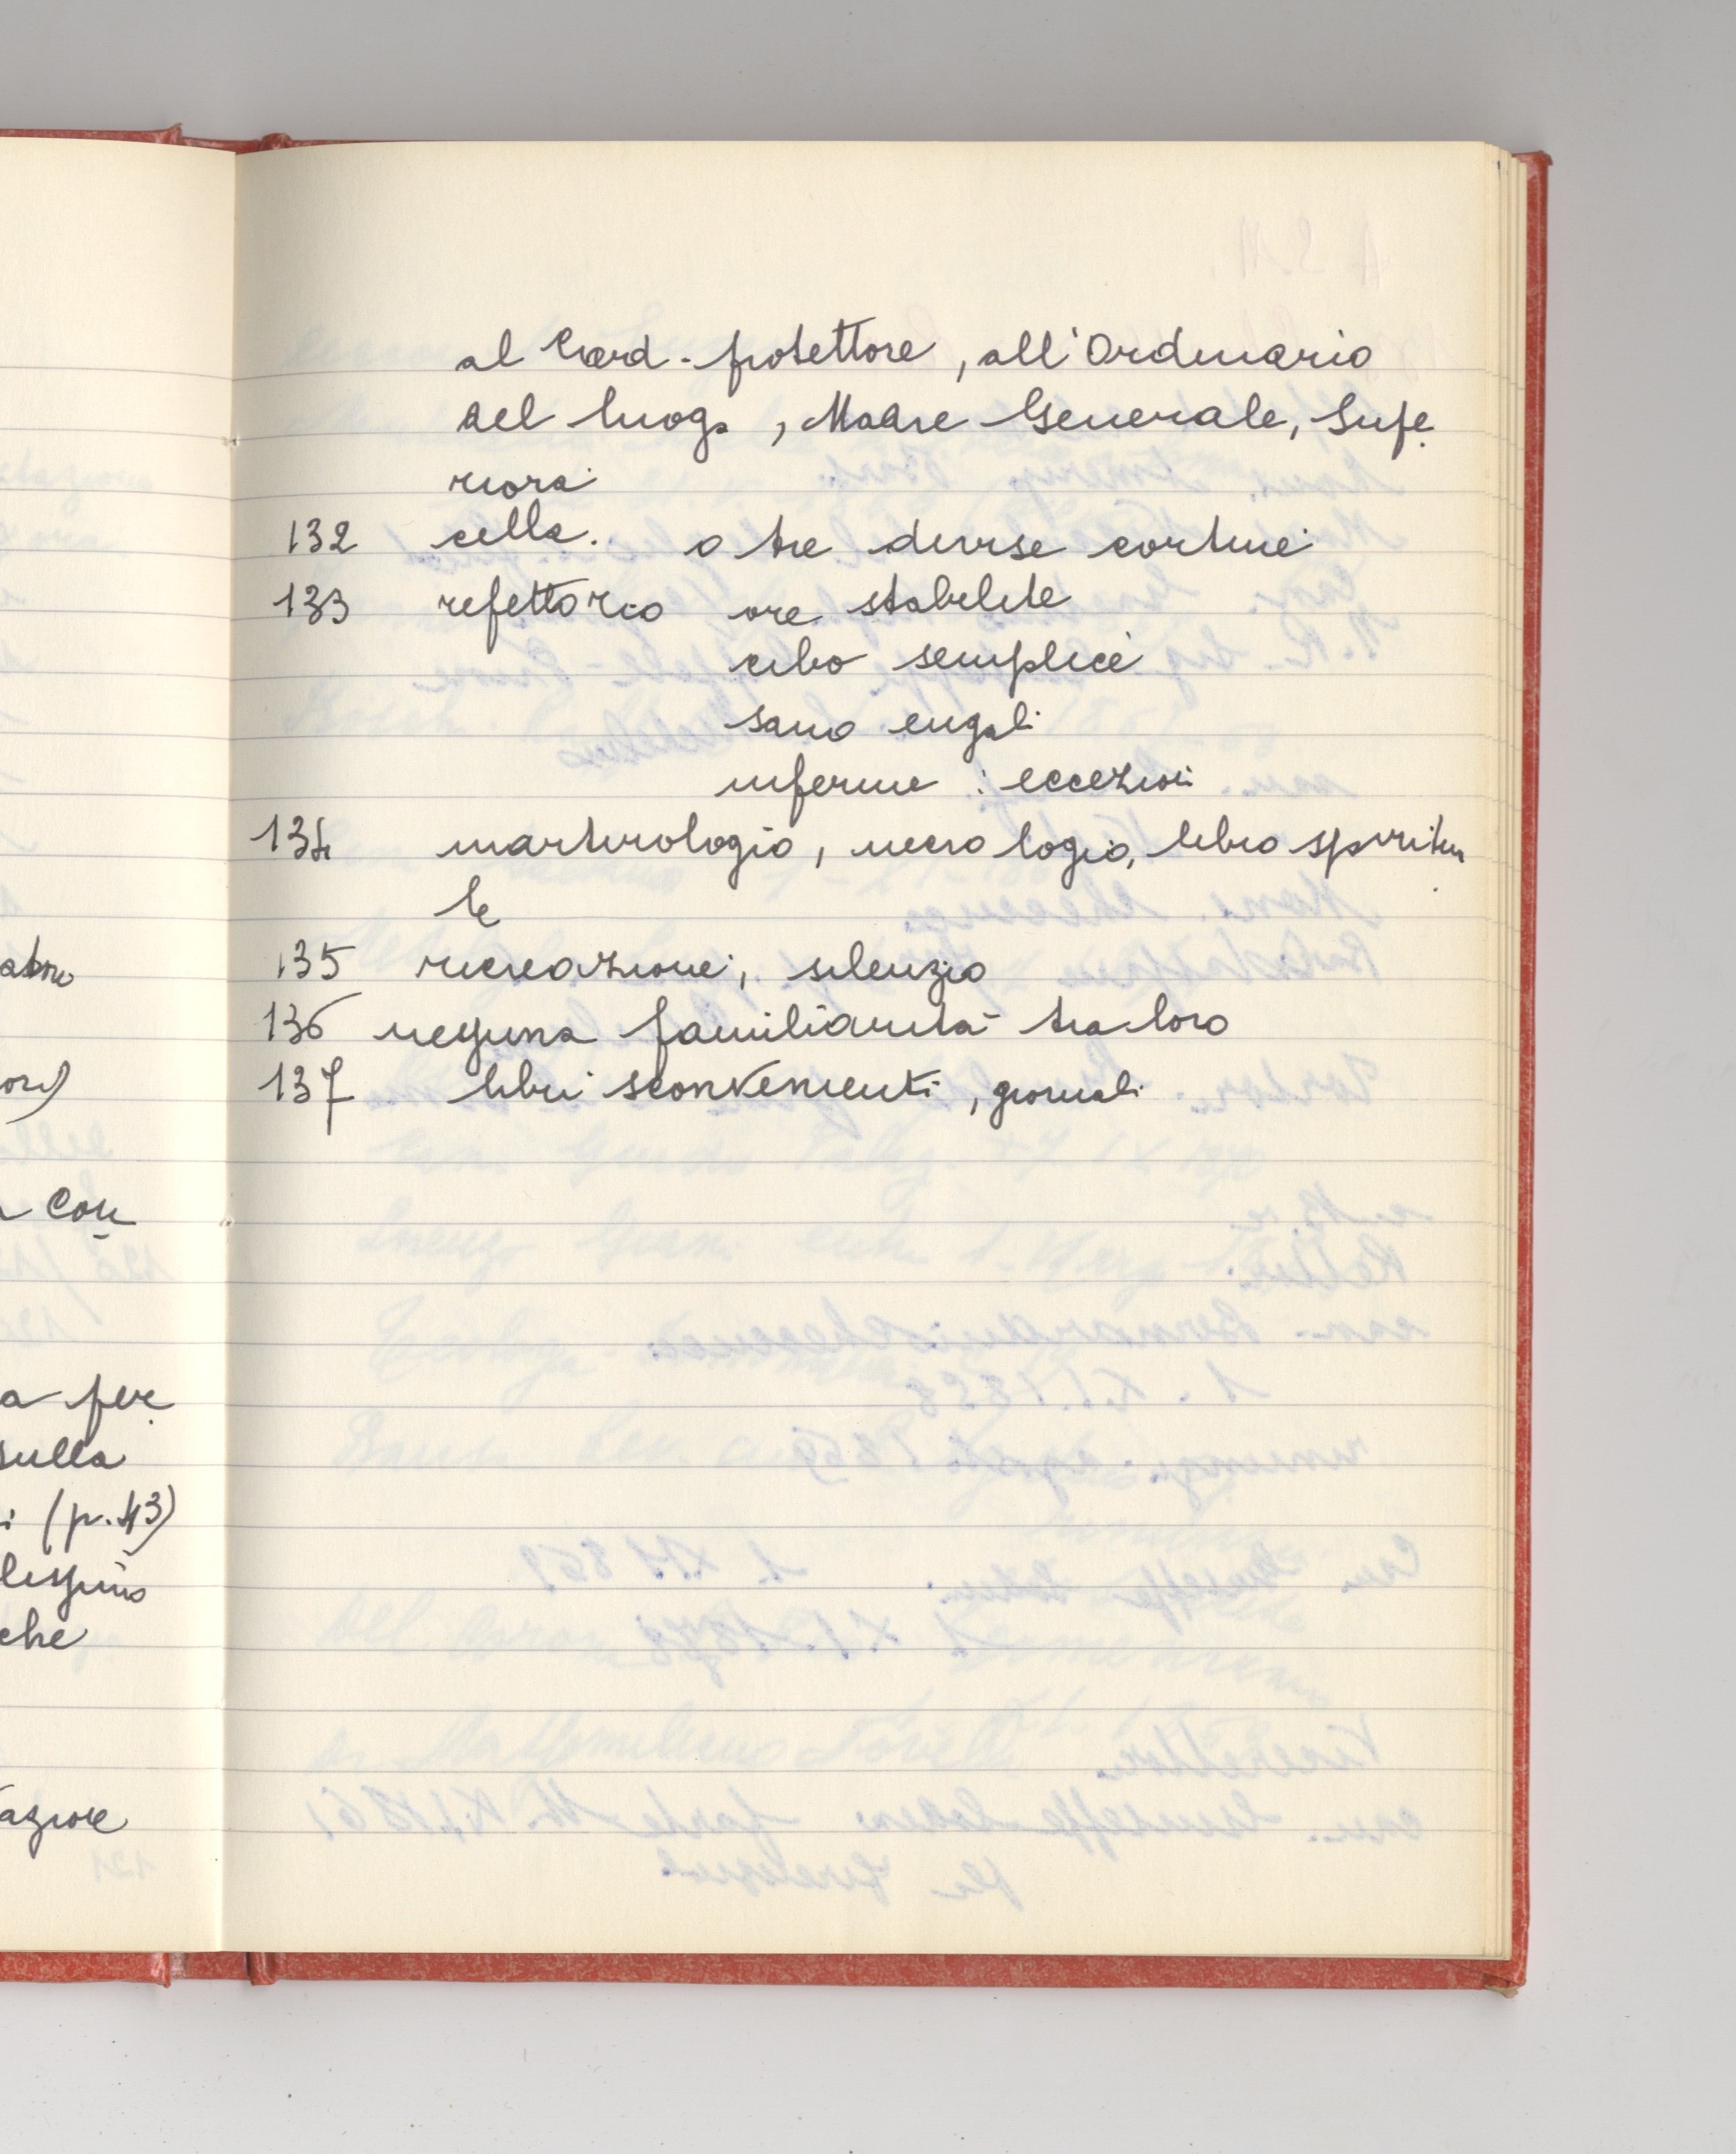 al Card. protettore, all'Ordinario
del luogo, Madre Generale, Supe
riora
132 cella. o tre divise cortine
133 refettorio ore stabilite
cibo semplice
sano eugali
inferme : eccezioni
134 martirologio, necrologio, libro spiritua
le
135 ricreazione, silenzio
136 nessuna familiarità tra loro
137 libri sconvenienti, giornali
a Con
a per
sulla
i (p. 43)
che
azione